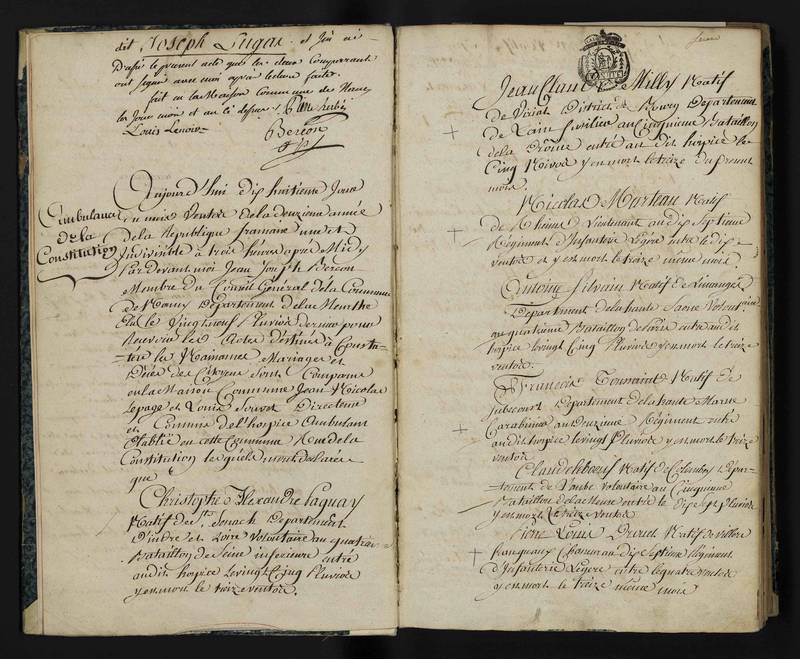 dit Joseph Lugar et j'ai ré-
Digé le present acte que les deux Comparants
ont signé avec moi après lecture faite.
fait en la Maison Commune de Nancy
les Jour mois et an ci dessus
Louis Lenoir
Bercon
Ambulance
de la
Constitution
Aujourd'hui dix huitieme Jour
du mois Ventose de la douzieme année
de la Republique francaise une et
Indivisible à trois heures après Midy
Pardevant moi Jean Joseph Bercon
Membre du Conseil Général de la Commune
de Nancy Departement de la Meurthe
Elu le Vingt neuf Pluviose dernier pour
Recevoir les Actes destinés à Consta-
ter les Naissances Mariages et
Décès des Citoyens sont Comparus
en la Maison Commune Jean Nicolas
Lepage et Louis Directeur
et Commis de l'hospice Ambulant
Etabli en cette Commune Rue de la
Constitution lesquels m'ont déclaré
que
Christophe Alexandre Paguay
Natif de Departement
D'indre et Loire Volontaire au quatrieme
Bataillon de Seine inferieure entré
audit hospice le vingt Cinq Pluviose
y est mort le treize ventose.
Jean Claude Milly Natif
de Viriat District de Bourg Departement
de Lain fusilier au Cinquieme Bataillon
de la Drôme entré au dit hospice le
Cinq Nivose y est mort le treize du present
mois.
Nicolas Marteau Natif
de Rheims Lieutenant au dix Septieme
Regiment d'Infanterie Legere entré le dix
ventose et y est mort le treize même mois.
Antoine Silvain Natif de
Departement de la haute Saone Volontaire
au quatrieme Bataillon de entré audit
hospice le vingt Cinq Pluviose y est mort le treize
ventose.
François Toussaint Natif de
Departement de la haute Marne
Carabinier au Douzieme Regiment entré
audit hospice le vingt Pluviose y est mort le treize
ventose
Claude leboeuf Natif de Colombey Depar-
tement de Volontaire au Cinquieme
Bataillon de la Meuse entré le dix Sept Pluviose
y est mort le treize ventose
Pierre Louis Drouet Natif de
Chasseur au dix Septieme Regiment
d'Infanterie Legere entré le quatre ventose
y est mort le treize même mois